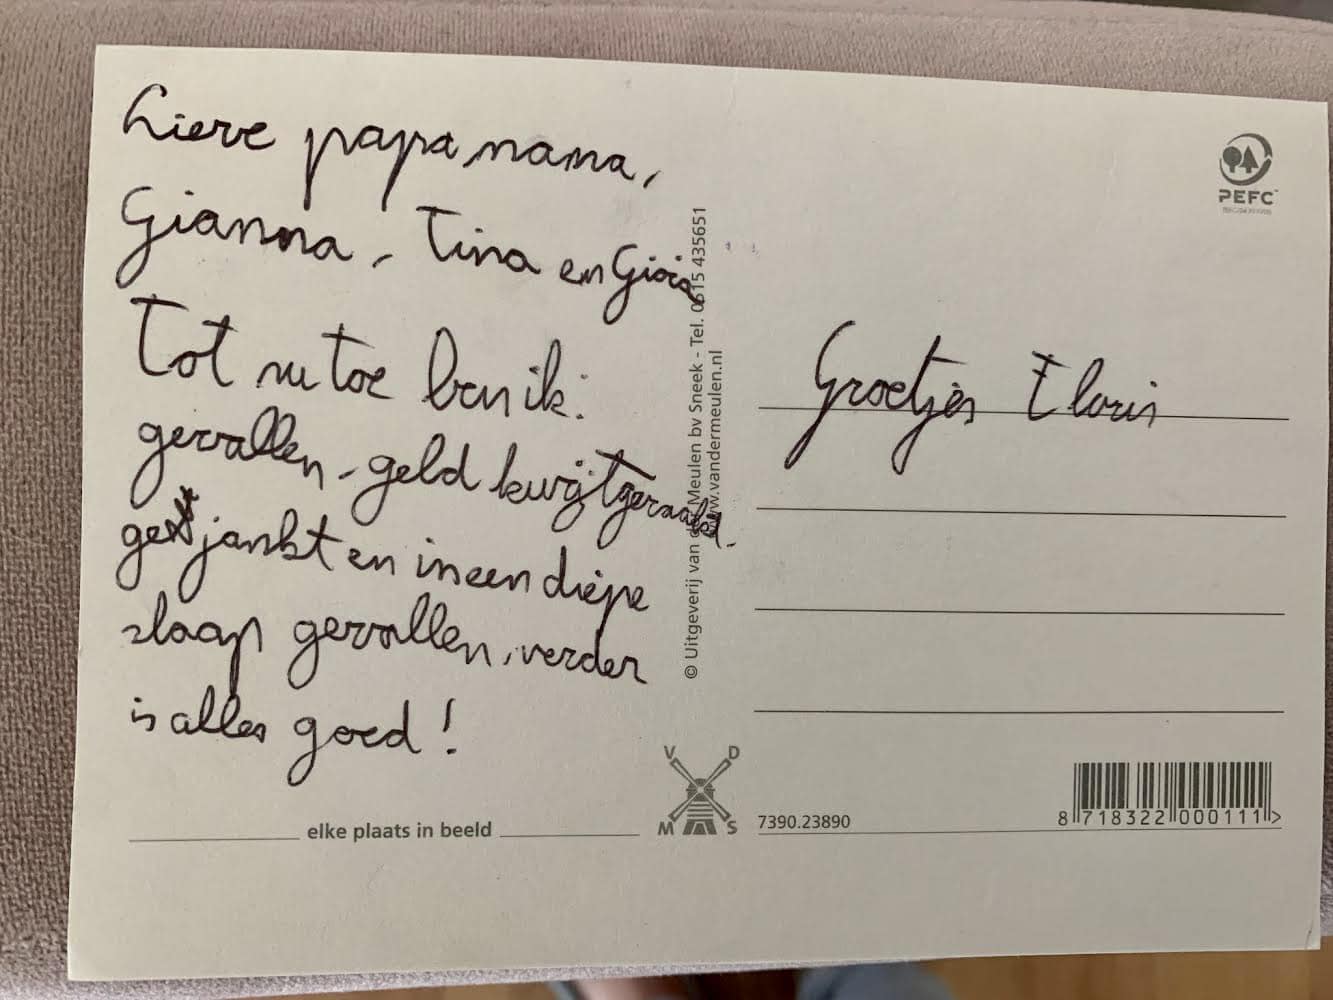 Lieve papa mama,
Gianna, Tina en Gioia
Tot nu toe ben ik:
gevallen, geld kwijtgeraakt.
gejankt en in een diepe
slaap gevallen, verder
is alles goed!
elke plaats in beeld
© Uitgeverij van der Meulen bv Sneek - Tel. 0515 435651
www.vandermeulen.nl
V D
M S
PEFC
Groetjes Floris
7390.23890
8 718322 000111 >